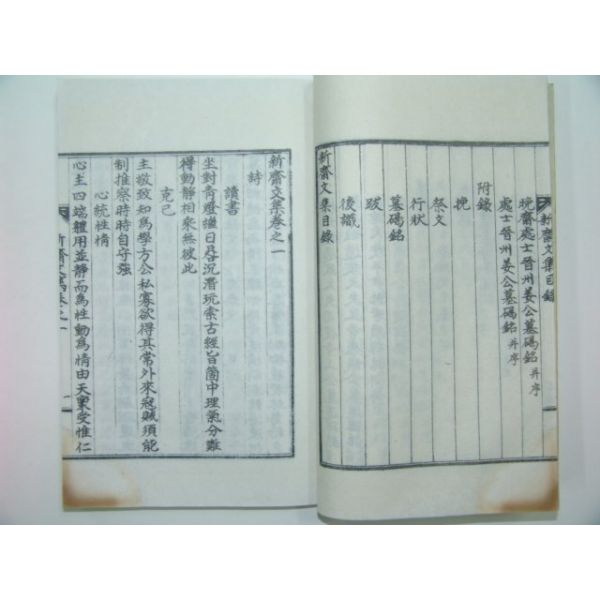 新齋文集目錄
晩齋處士晉州姜公墓碣銘 并序
處士晉州姜公墓碣銘 并序
附錄
挽
祭文
行狀
墓碣銘
跋
後識
新齋文集目錄
新齋文集卷之一
詩
讀書
坐對靑燈繼日晷沉潛玩索古經旨箇中理氣分難
得動靜相乘無彼此
克己
主敬致知爲學方公私寡欲得其常外來寇賊須能
制推察時時自守强
心統性情
心主四端體用並靜而爲性動爲情由天稟受惟仁